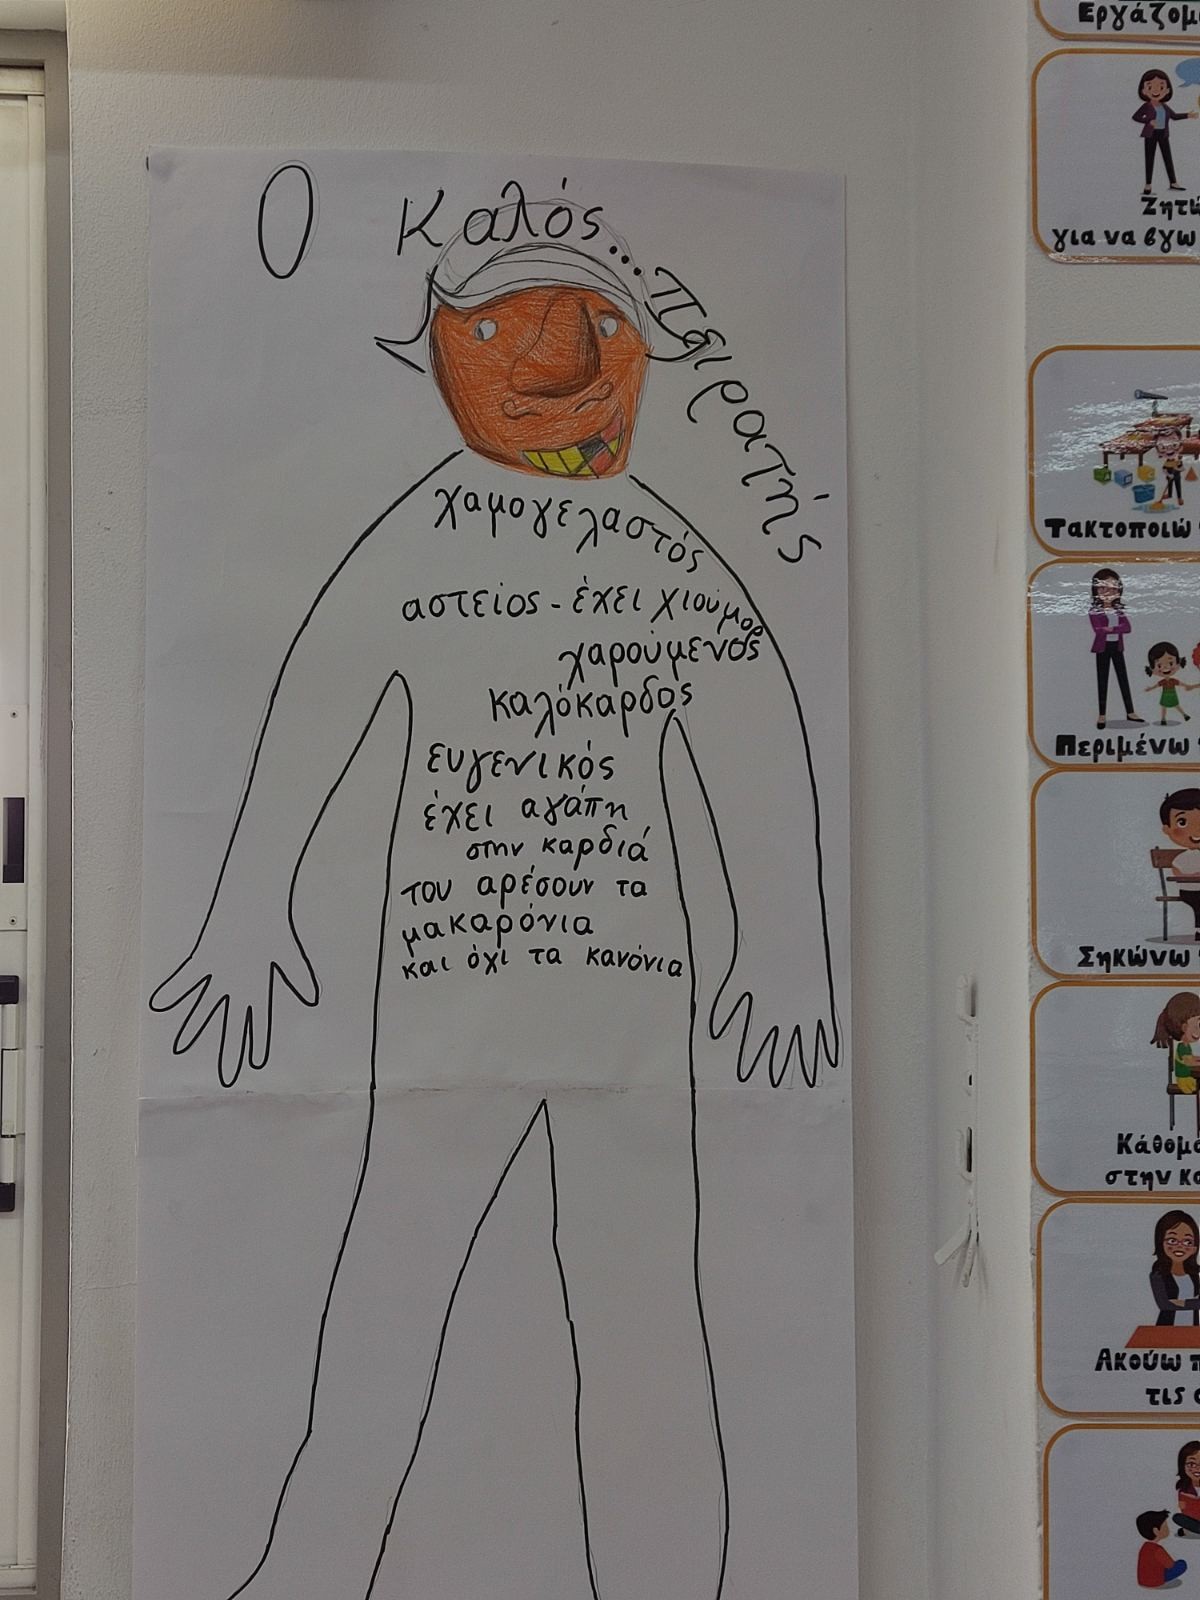 Ο καλός... πειρατής
χαμογελαστός
αστείος - έχει χιούμορ
χαρούμενος
καλόκαρδος
ευγενικός
έχει αγάπη
στην καρδιά
του αρέσουν τα
μακαρόνια
και όχι τα κανόνια
Εργάζομ
Ζητώ
για να βγω
Τακτοποιώ
Περιμένω
Σηκώνω
Κάθομα
στην κα
Ακούω π
τις